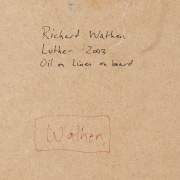 Richard Wathen
Luther 2003
Oil on linen on board
Wathen